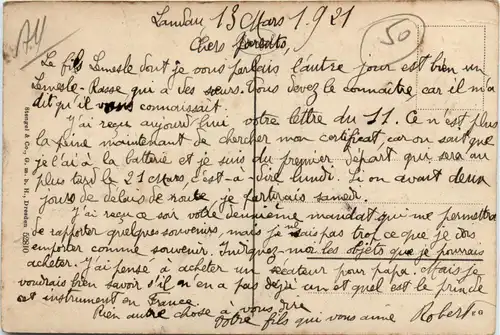 Landau 13 Mars 1921
50
Chers parents,
Le fils Lemesle dont je vous parlais l'autre jour est bien un
Lemesle-Rasse qui a des sœurs. Vous devez le connaître car il m'a
dit qu'il vous connaissait.
J'ai reçu aujourd'hui votre lettre du 11. Ce n'est plus
la peine maintenant de chercher mon certificat, car on sait que
je l'ai à la batterie et je suis du premier départ qui sera au
plus tard le 21 Mars, c'est-à-dire lundi. Si on avait deux
jours de délais de route, je partirais samedi.
J'ai reçu ce soir votre deuxième mandat qui me permettra
de rapporter quelques souvenirs, mais je ne sais pas trop ce que je dois
emporter comme souvenir. Indiquez-moi les objets que je pourrais
acheter. J'ai pensé à acheter un sécateur pour papa. Mais je
voudrais bien savoir s'il n'en a pas déjà un et quel est le prix de
cet instrument en France.
Rien autre chose à vous dire
Votre fils qui vous aime Robert
Stengel & Co., G. m. b. H., Dresden 52890